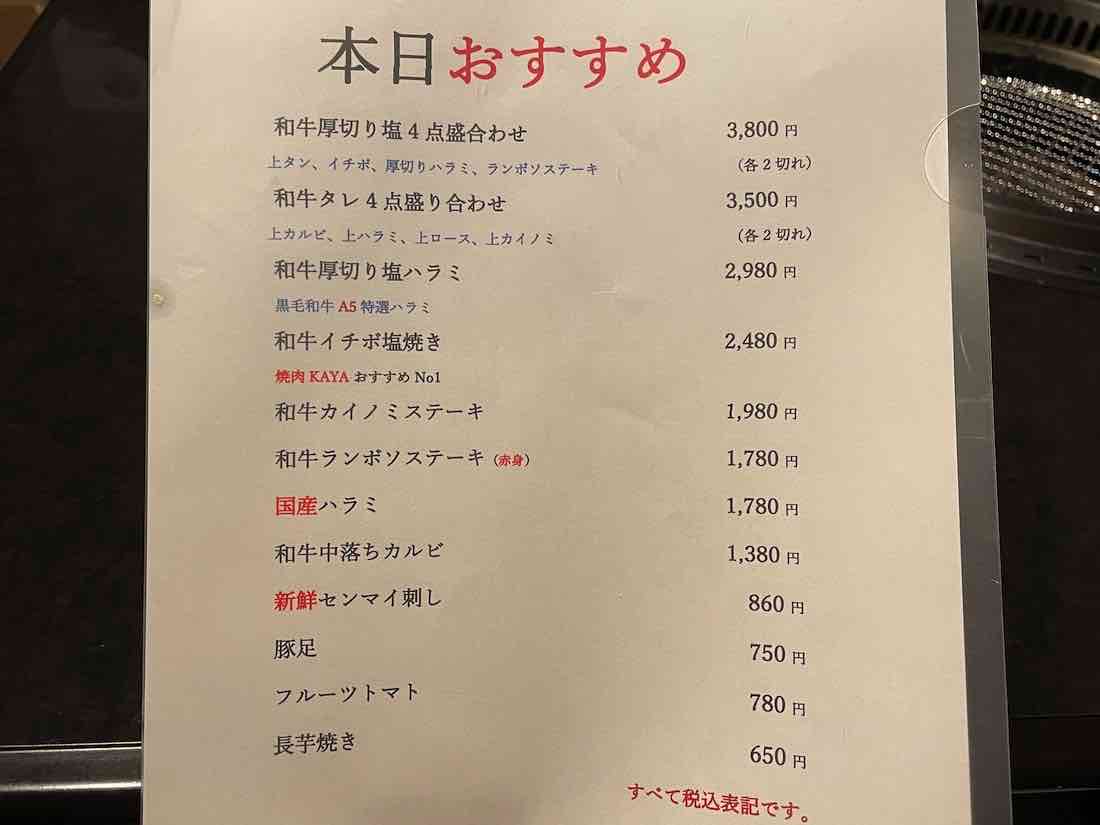 本日おすすめ
和牛厚切り塩4点盛合わせ 3,800円
上タン、イチボ、厚切りハラミ、ランボソステーキ (各2切れ)
和牛タレ4点盛り合わせ 3,500円
上カルビ、上ハラミ、上ロース、上カイノミ (各2切れ)
和牛厚切り塩ハラミ 2,980円
黒毛和牛A5特選ハラミ
和牛イチボ塩焼き 2,480円
焼肉KAYAおすすめNo1
和牛カイノミステーキ 1,980円
和牛ランボソステーキ(赤身) 1,780円
国産ハラミ 1,780円
和牛中落ちカルビ 1,380円
新鮮センマイ刺し 860円
豚足 750円
フルーツトマト 780円
長芋焼き 650円
すべて税込表記です。